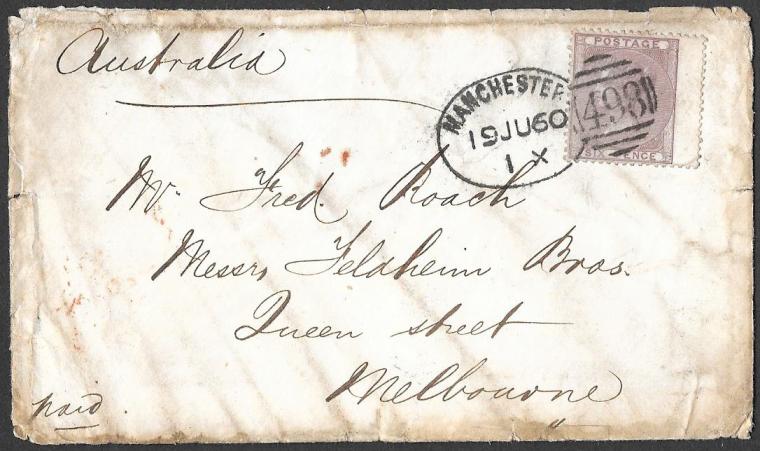 Australia
POSTAGE
MANCHESTER
19JU60
1 X
498
SIX PENCE
Mr. Fred. Roach
Messrs Feldheim Bros.
Queen street
Melbourne
paid.